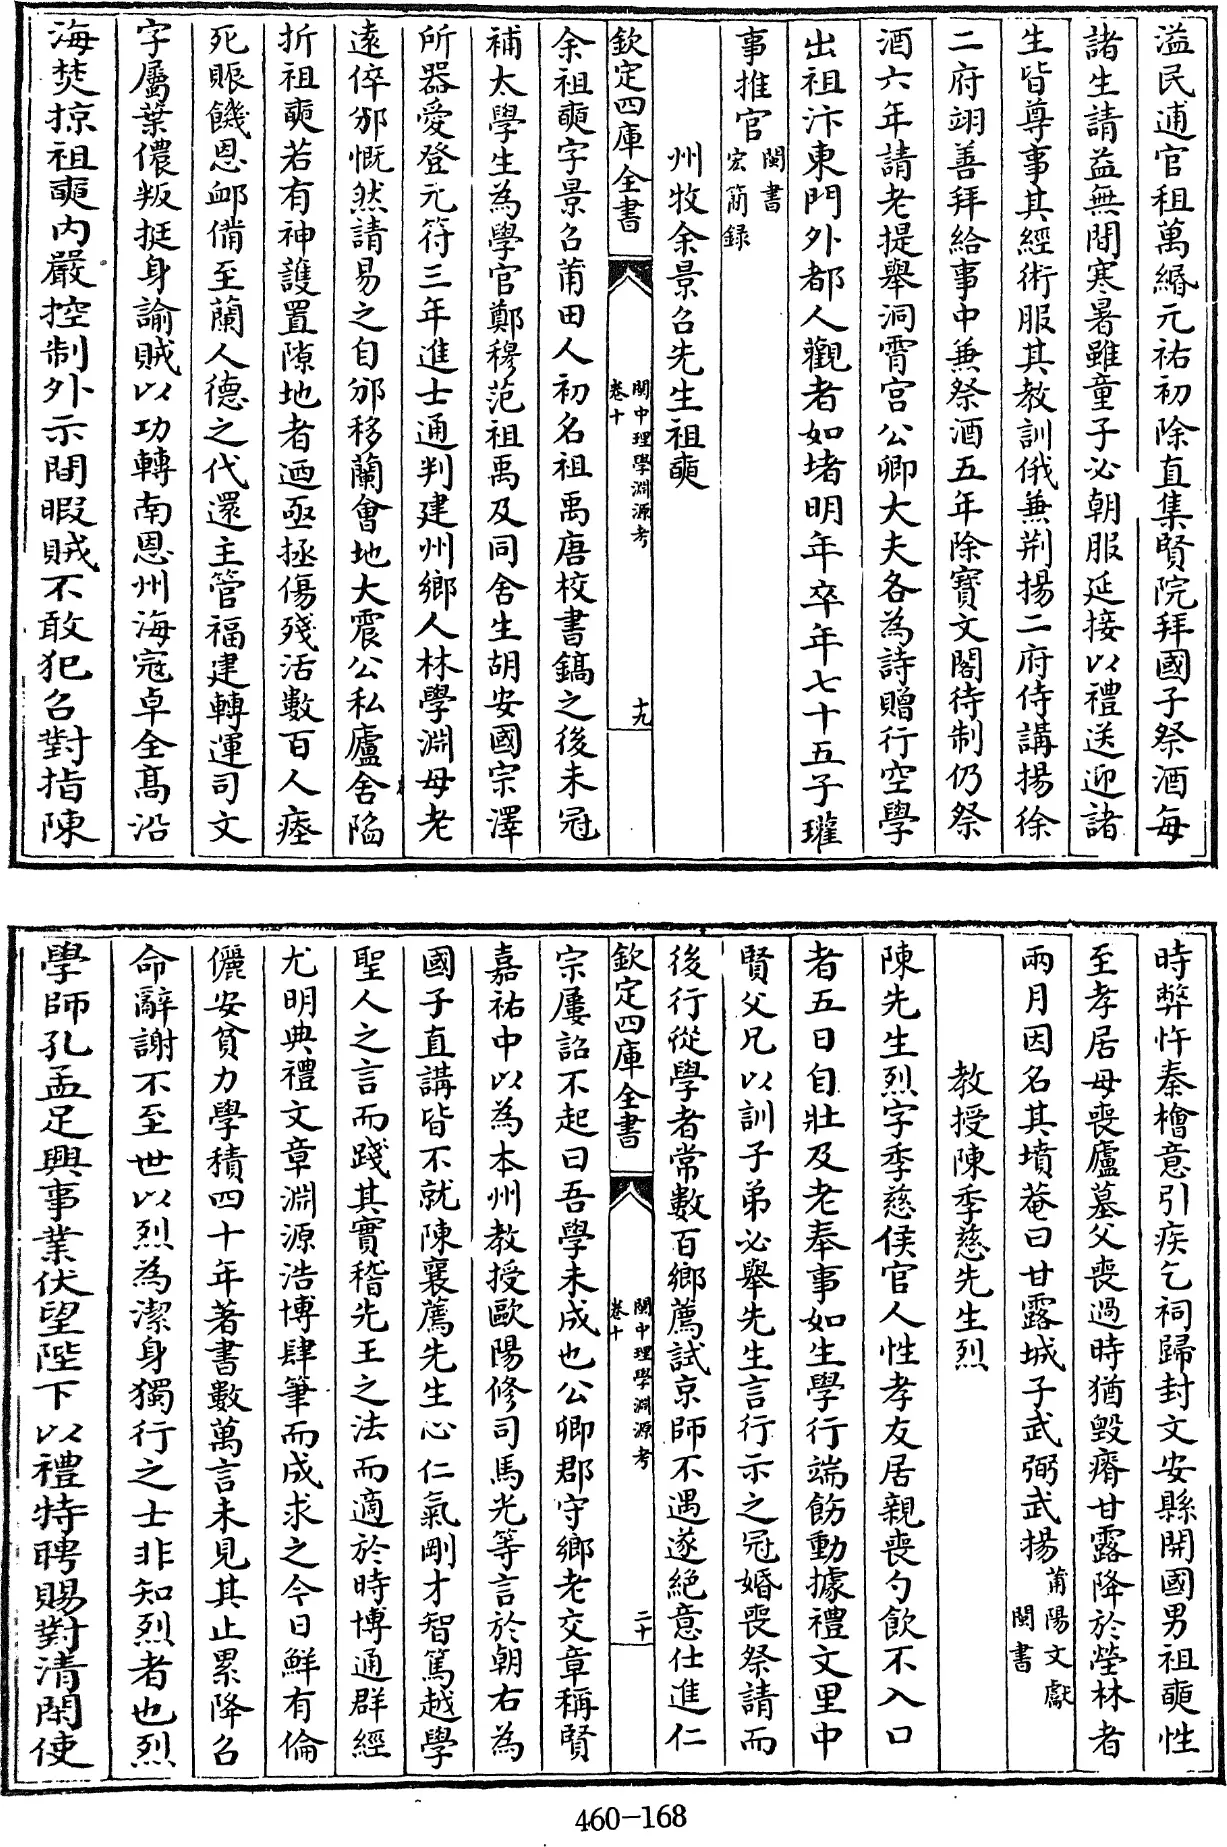 溢民逋官租萬緡元祐初除直集賢院拜國子祭酒每
諸生請益無間寒暑雖童子必朝服延接以禮送迎諸
生皆尊事其經術服其教訓俄兼荆揚二府侍講揚徐
二府翊善拜給事中兼祭酒五年除寶文閣待制仍祭
酒六年請老提舉洞霄宫公卿大夫各為詩贈行空學
出祖汴東門外都人觀者如堵明年卒年七十五子璀
事推官閩書宏簡録
州牧余景召先生祖奭
欽定四庫全書
閩中理學淵源考
卷十
十九
余祖奭字景召莆田人初名祖禹唐校書鎬之後未冠
補太學生為學官鄭穆范祖禹及同舍生胡安國宗澤
所器愛登元符三年進士通判建州鄉人林學淵母老
逺倅邠慨然請易之自邠移蘭會地大震公私廬舍陷
折祖奭若有神護置隙地者廼亟拯傷殘活數百人瘞
死賑饑恩䘏備至蘭人德之代還主管福建轉運司文
字屬葉儂叛挺身諭賊以功轉南恩州海寇卓全髙沿
海焚掠祖奭内嚴控制外示閒暇賊不敢犯召對指陳
時弊忤秦檜意引疾乞祠歸封文安縣開國男祖奭性
至孝居母喪廬墓父喪過時猶毁瘠甘露降於塋林者
兩月因名其墳菴曰甘露城子武弼武揚莆陽文獻閩書
教授陳季慈先生烈
陳先生烈字季慈侯官人性孝友居親喪勺飲不入口
者五日自壯及老奉事如生學行端飭動據禮文里中
賢父兄以訓子弟必舉先生言行示之冠婚喪祭請而
後行從學者常數百鄉薦試京師不遇遂絶意仕進仁
欽定四庫全書
閩中理學淵源考
卷十
二十
宗屢詔不起曰吾學未成也公卿郡守鄉老交章稱賢
嘉祐中以為本州教授歐陽修司馬光等言於朝右為
國子直講皆不就陳襄薦先生心仁氣剛才智篤越學
聖人之言而踐其實稽先王之法而適於時博通群經
尤明典禮文章淵源浩博肆筆而成求之今日鮮有倫
儷安貧力學積四十年著書數萬言未見其止累降召
命辭謝不至世以烈為潔身獨行之士非知烈者也烈
學師孔孟足興事業伏望陛下以禮特聘賜對清閒使
460-168